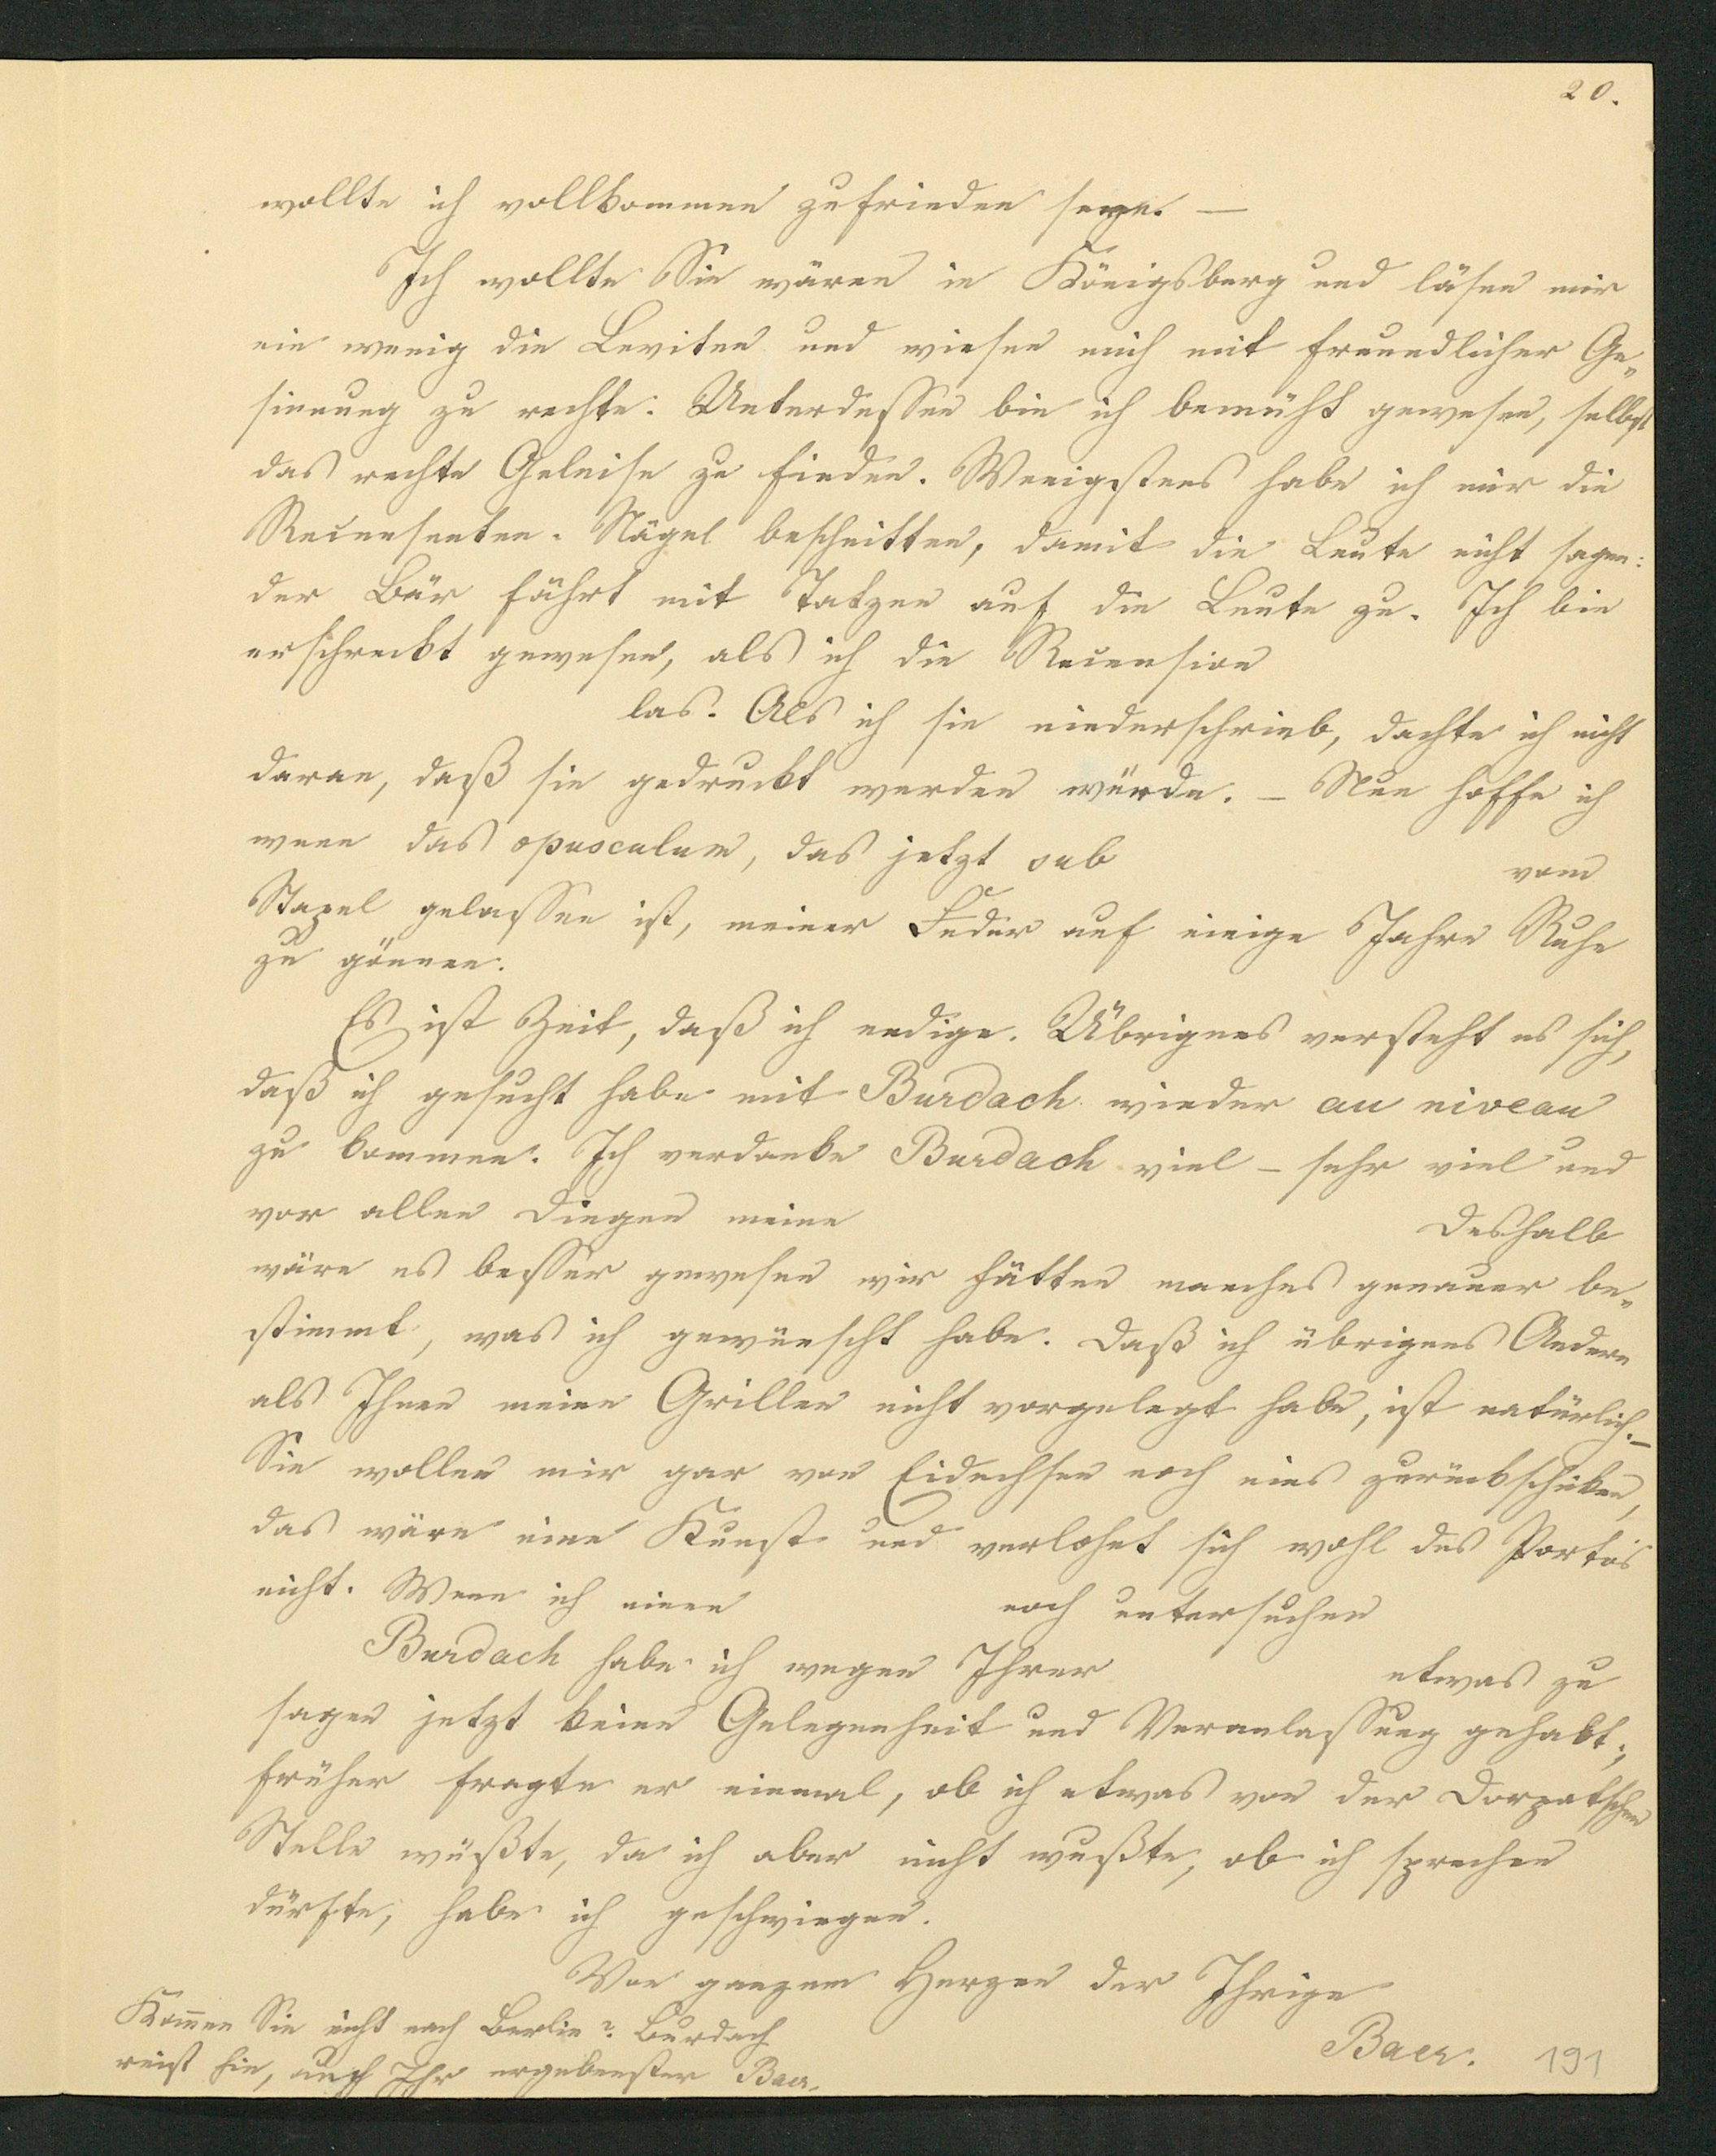 20.
wollte ich vollkommen zufrieden seyn. —
Ich wollte Sie wären in Königsberg und läsen mir
ein wenig die Leviten und wiesen mich mit freundlicher Ge„
sinnung zu rechte. Unterdessen bin ich bemüht gewesen, selbst
das rechte Geleise zu finden. Wenigstens habe ich mir die
Recensenten-Nägel beschnitten, damit die Leute nicht sagen:
der Bär fährt mit Tatzen auf die Leute zu. Ich bin
erschreckt gewesen, als ich die Recension
las. Als ich sie niederschrieb, dachte ich nicht
daran, daß sie gedruckt werden würde. – Nun hoffe ich
wenn das opusculum, das jetzt sub vom
Stapel gelassen ist, meiner Feder auf einige Jahre Ruhe
zu gönnen.
Es ist Zeit, daß ich endige. Übrigens versteht es sich,
daß ich gesucht habe mit Burdach wieder au niveau
zu kommen. Ich verdanke Burdach viel – sehr viel und
vor allen Dingen meine Deshalb
wäre es besser gewesen wir hätten manches genauer be„
stimmt, was ich gewünscht habe. Daß ich übrigens Andern
als Ihnen meine Grillen nicht vorgelegt habe, ist natürlich. –
Sie wollen mir gar von Eidechsen noch eins zurückschicken,
das wäre eine Kunst und verlohnt sich wohl des Porto's
nicht. Wenn ich einen noch untersuchen
Burdach habe ich wegen Ihrer etwas zu
sagen jetzt keine Gelegenheit und Veranlassung gehabt;
früher fragte er einmal, ob ich etwas von der Dorpatschen
Stelle wüßte, da ich aber nicht wußte, ob ich sprechen
dürfte, habe ich geschwiegen.
Von ganzem Herzen der Ihrige
Baer.
Kom̄en Sie nicht nach Berlin? Burdach
reist hin, auch Ihr ergebenster Baer.
191